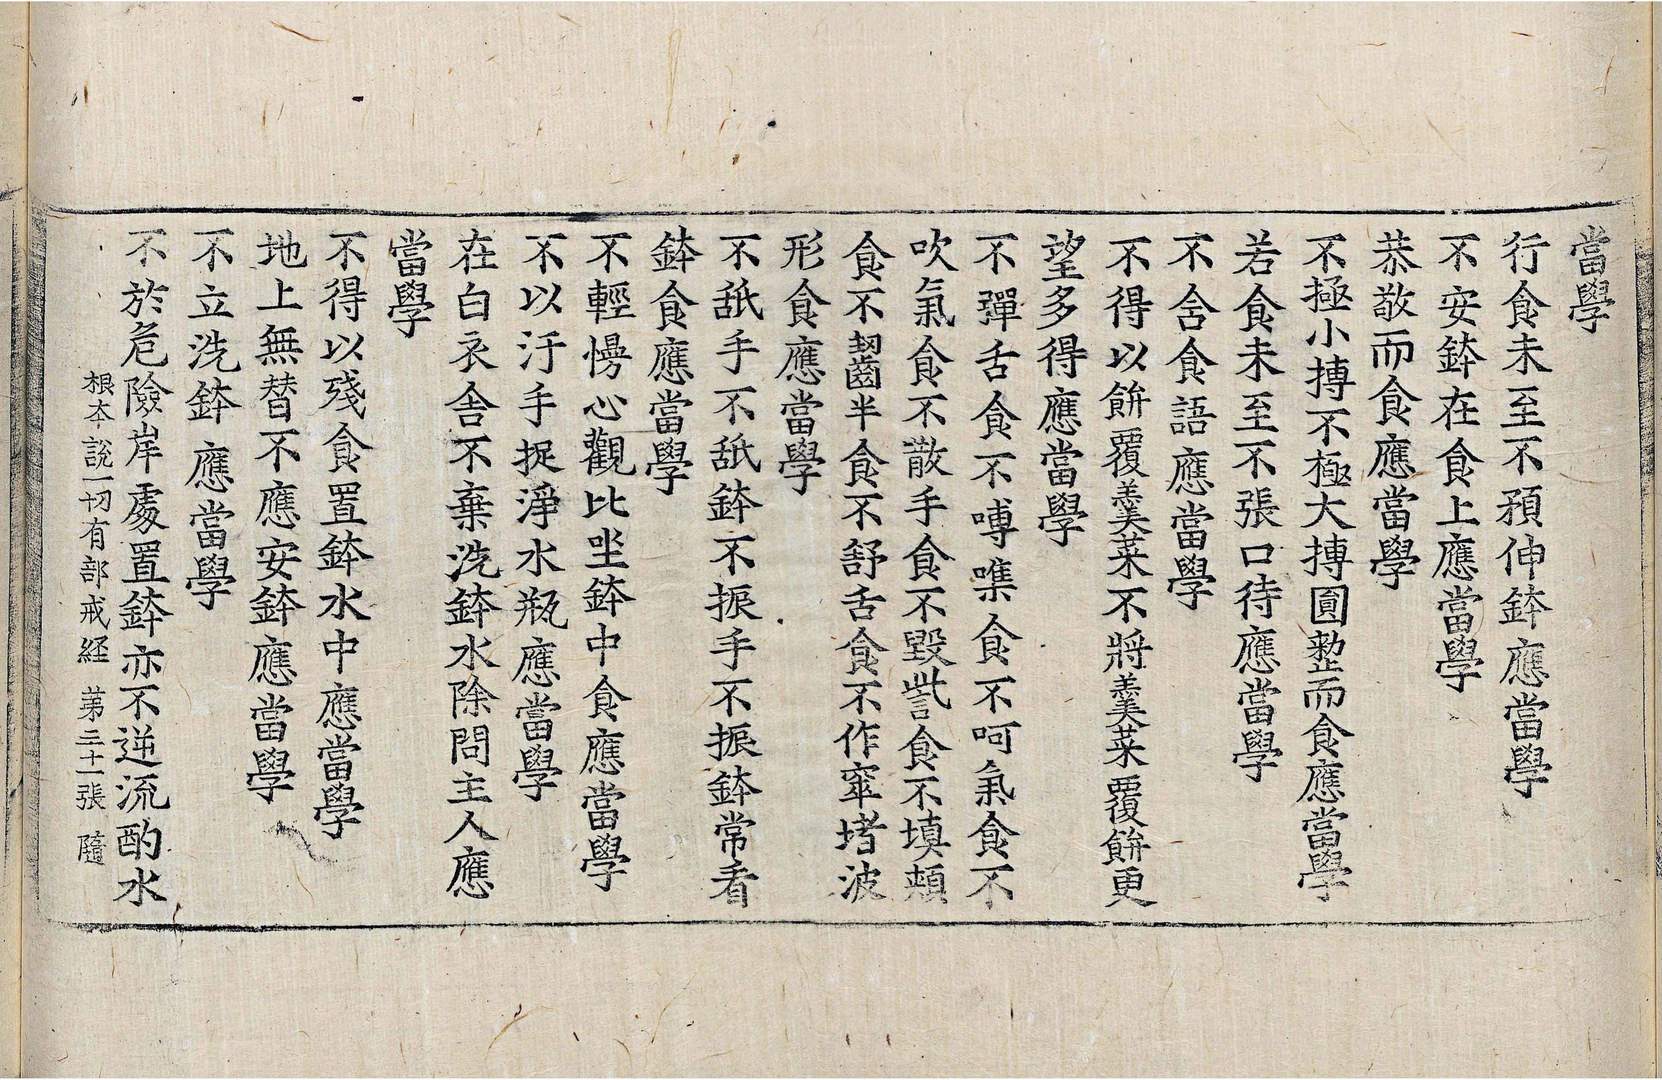 當學
行食未至不預伸鉢應當學
不安鉢在食上應當學
恭敬而食應當學
不極小摶不極大摶圓整而食應當學
若食未至不張口待應當學
不含食語應當學
不得以餅覆羹菜不將羹菜覆餅更
望多得應當學
不彈舌食不㗘嘺食不呵氣食不
吹氣食不散手食不毀訾食不填頰
食不齧半食不舒舌食不作窣堵波
形食應當學
不舐手不舐鉢不振手不振鉢常看
鉢食應當學
不輕慢心觀比坐鉢中食應當學
不以汙手捉淨水瓶應當學
在白衣舍不棄洗鉢水除問主人應
當學
不得以殘食置鉢水中應當學
地上無替不應安鉢應當學
不立洗鉢應當學
不於危險岸處置鉢亦不逆流酌水
根本說一切有部戒経 苐二十一張 隨